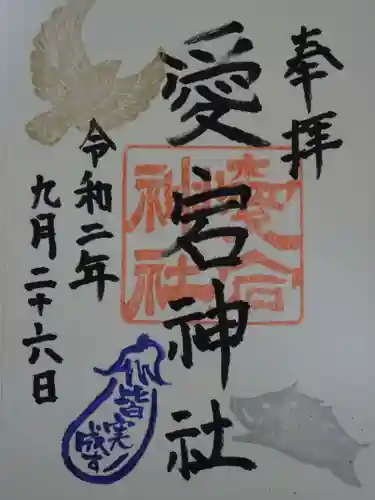 奉拝
愛宕神社
愛宕
神社
令和二年
九月二十六日
皆実
成す